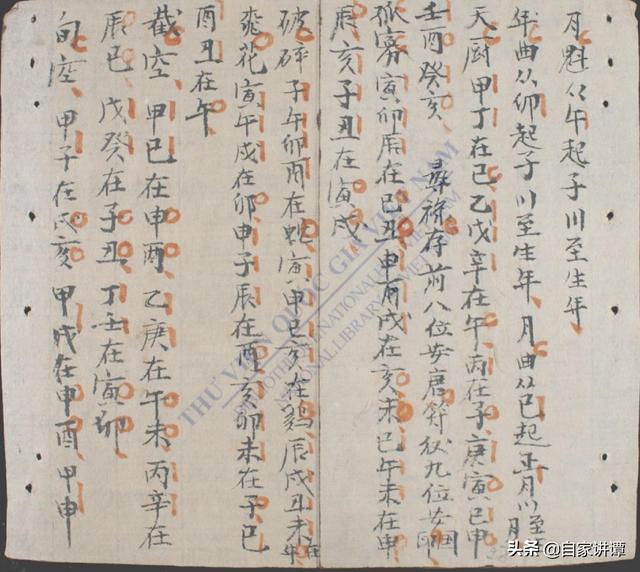 月魁从午起子川至生年
年曲从卯起子川至生年月曲从巳起正月川至
月
天厨甲丁在巳乙戊辛在午丙在子庚寅巳申
壬酉癸亥 禄存前八位安唐符从九位安國印
孤寡寅卯辰在巳丑申酉戌在亥未巳午未在申
辰亥子丑在寅戌
破碎子午卯酉在蛇寅申巳亥在鷄辰戌丑未在
牛
飛花寅午戌在卯申子辰在酉亥卯未在子巳
酉丑在午
截空甲己在申酉乙庚在午未丙辛在
辰巳戊癸在子丑丁壬在寅卯
旬空甲子在戌亥甲戌在申酉甲申
THƯ VIỆN QUỐC GIA VIỆT NAM
BIBLIOTHEQUE NATIONALE DU VIETNAM
NATIONAL LIBRARY OF VIETNAM
头条 @自家讲谭